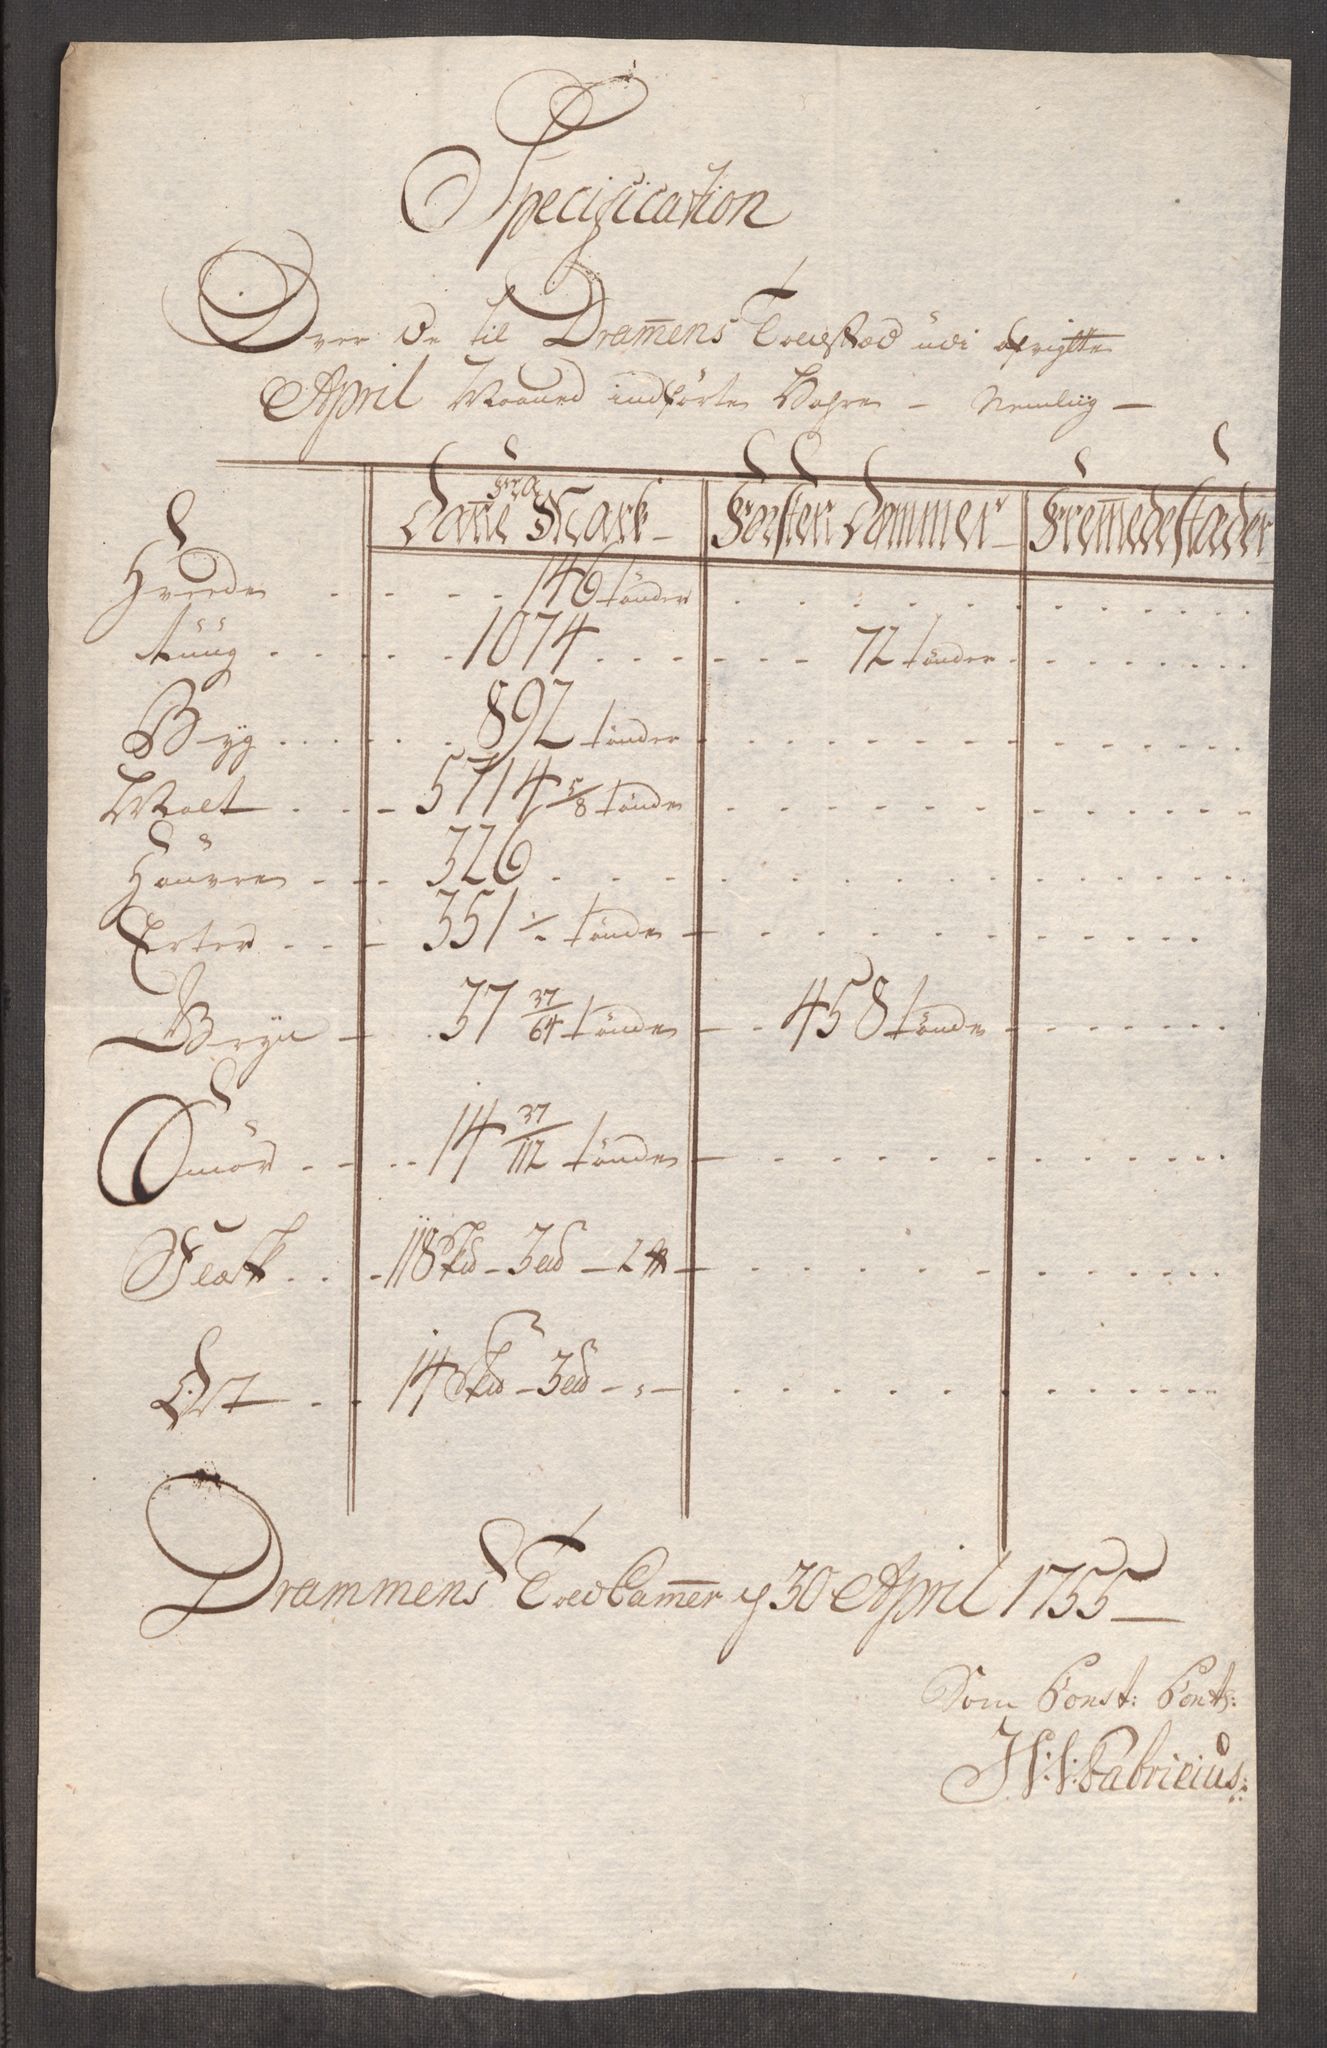 Specification
Over de til Dram̅ens Toldsted udi afvigte
April Maaned indførte Vahre - Nemlig -
fra
Dan̅e Mark - Forsten Dommer - Frem̅ede stæder
Hvede . . . . . 146 tønder . . . . .
Rüüg . . . . . 1074 . . . . . 72 tønder . . . . .
Byg . . . . . 892 tønder . . . . .
Malt . . . - 5714 5/8 tønde . . . . .
Haüvre . . . . 326 . . . . .
Erter . . . - 351 tønde - . . . . .
Gryn - . 37 37/64 tønde - . . 458 tønde . . . . .
Smør . . . . . 14 37/112 tønde - . . . . .
Flæsk . . . . 118 Skd - 3 Lid - 2 ℔ - . . . . .
Ost . . 14 Skd - 3 Lid - " - . . . . .
Drammens Told Cam̅er d 30 April 1755 -
Som Const: Cont:
H: V: Fabricius: